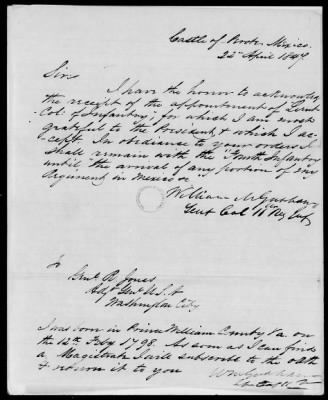 Castle of Perote Mexico.
22d April 1847
Sir
I have the honor to acknowledge
the receipt of the appointment of Lieut
Col: of Infantry; for which I am most
grateful to the President, & which I ac-
cept. In obedience to your orders I
shall remain with the Fourth Infantry
until the arrival of any portion of my
Regiment in Mexico
William M Graham
Lieut Col 11th Reg Inf
To
Genl R Jones
Adjt Genl U.S.A
Washington City
I was born in Prince William County Va. on
the 12th Feby 1798. As soon as I can find
a Magistrate I will subscribe to the oath
& return it to you
Wm Graham